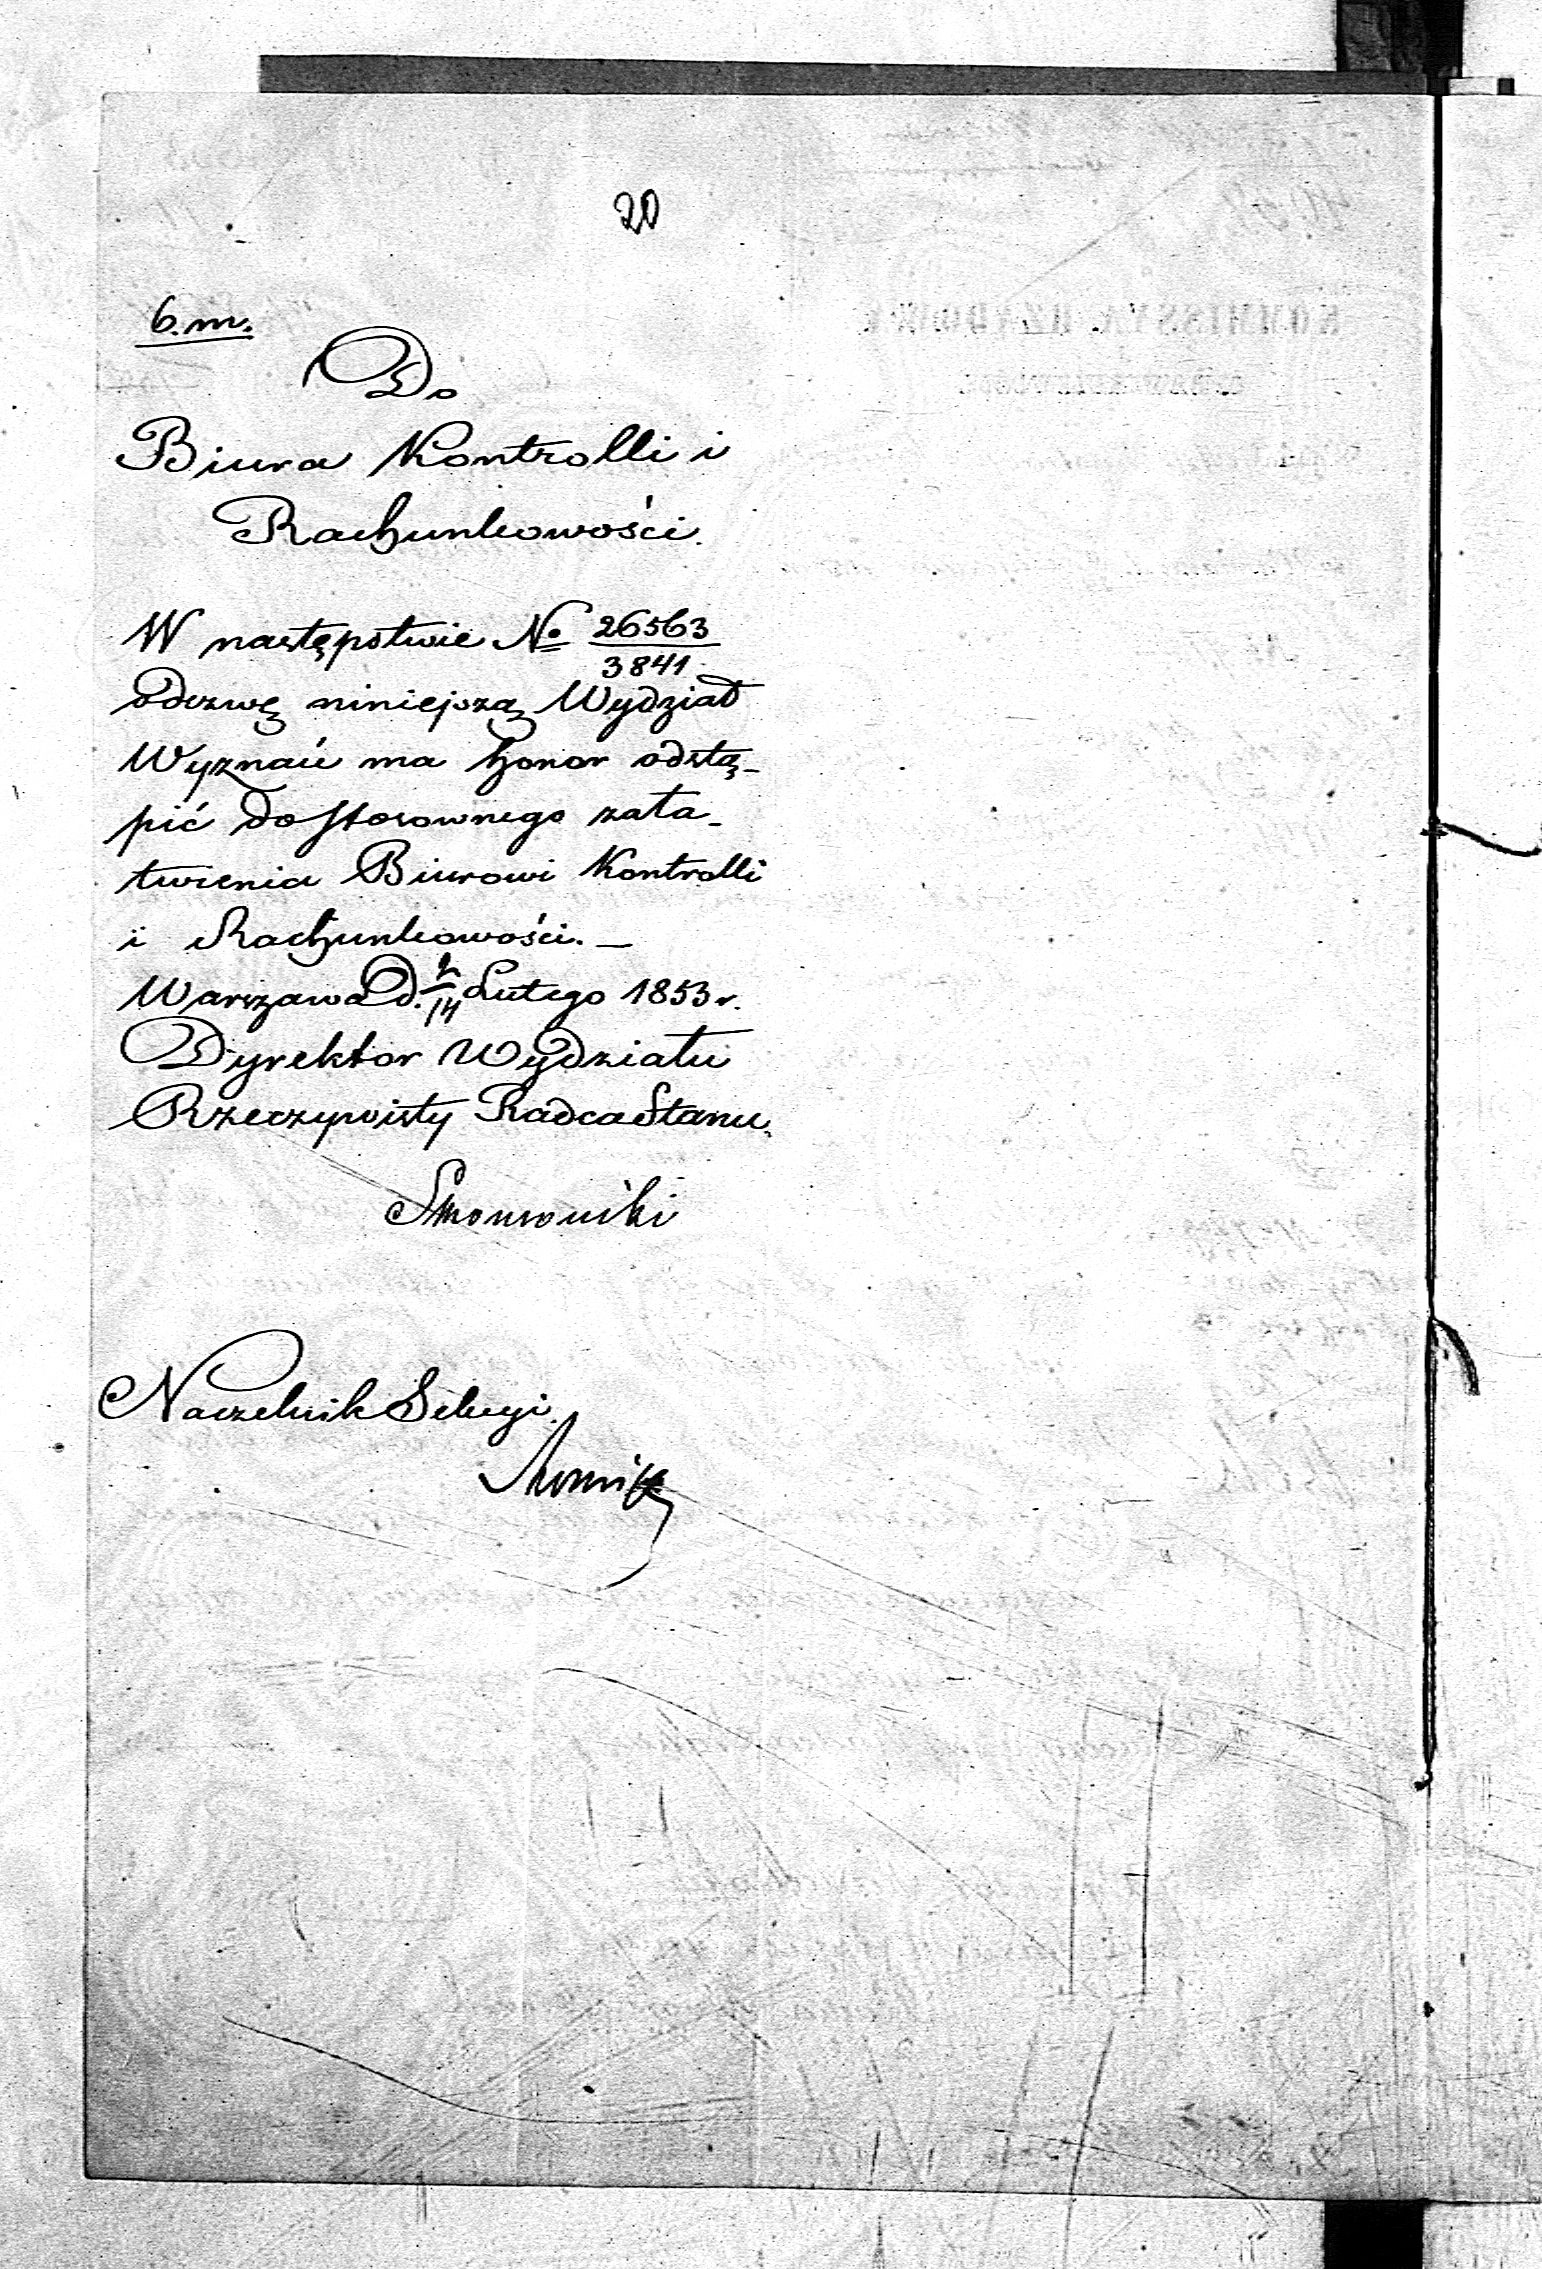 20
6.m.
Do
Biura Kontrolli i
Rachunkowości.
W następstwie No 26563
3841
odezwę niniejszą Wydział
Wyznań ma honor odstą-
pić do stosownego zała-
twienia Biurowi Kontrolli
i Rachunkowości. —
Warszawa d. 2/14 Lutego 1853 r.
Dyrektor Wydziału
Rzeczywisty Radca Stanu.
Naczelnik Sekcyi.
KOMMISSYA RZĄDOWA